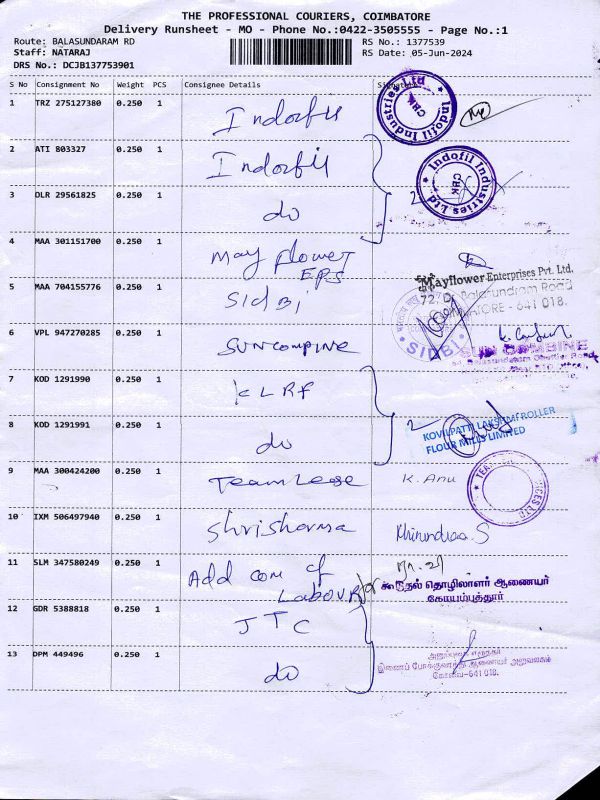 THE PROFESSIONAL COURIERS, COIMBATORE
Delivery Runsheet - MO - Phone No.:0422-3505555 - Page No.:1
Route: BALASUNDARAM RD
RS No.: 1377539
Staff: NATARAJ
RS Date: 05-Jun-2024
DRS No.: DCJB137753901
S No Consignment No Weight PCS Consignee Details
1 TRZ 275127380 0.250 1 Indofil
Indofil Industries Ltd
CBK
2 ATI 803327 0.250 1 Indofil
Indofil Industries Ltd
CBK
3 DLR 29561825 0.250 1 do
2
4 MAA 301151700 0.250 1 May flower
EPS
Mayflower Enterprises Pvt. Ltd.
727, Dr. Balasundram Road
COIMBATORE - 641 018.
5 MAA 704155776 0.250 1 SIdBi
SIDBI
6 VPL 947270285 0.250 1 SUNCOMPINE
SUN COMBINE
7 KOD 1291990 0.250 1 KLRF
8 KOD 1291991 0.250 1 do
2
KOVILPATTI LAKSHMI ROLLER
FLOUR MILLS LIMITED
9 MAA 300424200 0.250 1 TeamLease
K. Anu
10 IXM 506497940 0.250 1 Shrisharma
11 SLM 347580249 0.250 1 Add com of
Labour
கூடுதல் தொழிலாளர் ஆணையர்
கோயம்புத்தூர்
12 GDR 5388818 0.250 1 JTC
13 DPM 449496 0.250 1 do
இணைப் போக்குவரத்து ஆணையர் அலுவலகம்
கோவை-641 018.